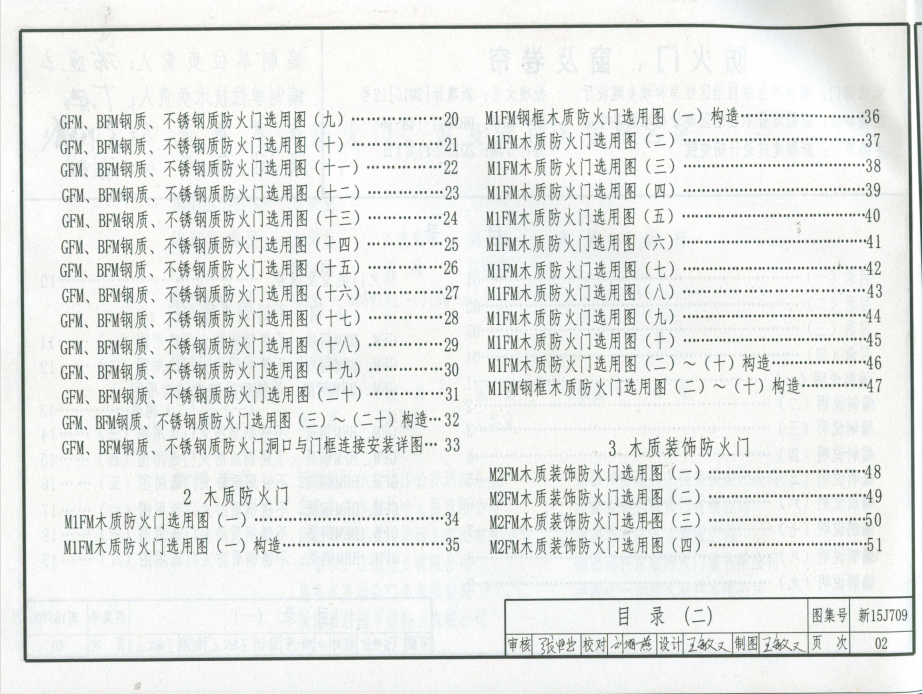 GFM、BFM钢质、不锈钢质防火门选用图（九）……………20
GFM、BFM钢质、不锈钢质防火门选用图（十）……………21
GFM、BFM钢质、不锈钢质防火门选用图（十一）…………22
GFM、BFM钢质、不锈钢质防火门选用图（十二）…………23
GFM、BFM钢质、不锈钢质防火门选用图（十三）…………24
GFM、BFM钢质、不锈钢质防火门选用图（十四）…………25
GFM、BFM钢质、不锈钢质防火门选用图（十五）…………26
GFM、BFM钢质、不锈钢质防火门选用图（十六）…………27
GFM、BFM钢质、不锈钢质防火门选用图（十七）…………28
GFM、BFM钢质、不锈钢质防火门选用图（十八）…………29
GFM、BFM钢质、不锈钢质防火门选用图（十九）…………30
GFM、BFM钢质、不锈钢质防火门选用图（二十）…………31
GFM、BFM钢质、不锈钢质防火门选用图（三）～（二十）构造…32
GFM、BFM钢质、不锈钢质防火门洞口与门框连接安装详图…33
2 木质防火门
M1FM木质防火门选用图（一）……………………………34
M1FM木质防火门选用图（一）构造………………………35
M1FM钢框木质防火门选用图（一）构造…………………36
M1FM木质防火门选用图（二）……………………………37
M1FM木质防火门选用图（三）……………………………38
M1FM木质防火门选用图（四）……………………………39
M1FM木质防火门选用图（五）……………………………40
M1FM木质防火门选用图（六）……………………………41
M1FM木质防火门选用图（七）……………………………42
M1FM木质防火门选用图（八）……………………………43
M1FM木质防火门选用图（九）……………………………44
M1FM木质防火门选用图（十）……………………………45
M1FM木质防火门选用图（二）～（十）构造……………46
M1FM钢框木质防火门选用图（二）～（十）构造………47
3 木质装饰防火门
M2FM木质装饰防火门选用图（一）………………………48
M2FM木质装饰防火门选用图（二）………………………49
M2FM木质装饰防火门选用图（三）………………………50
M2FM木质装饰防火门选用图（四）………………………51
目 录（二） 图集号 新15J709
审核 校对 设计 王敏又 制图 王敏又 页 次 02